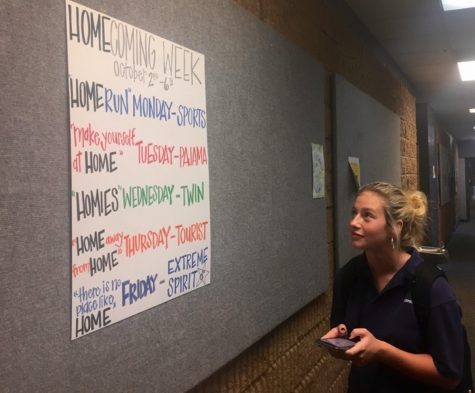 HOMECOMING WEEK
October 2nd - 6th
"HOME RUN" MONDAY - SPORTS
"make yourself
at HOME" TUESDAY - PAJAMA
"HOMIES" WEDNESDAY - TWIN
"HOME away THURSDAY - TOURIST
from HOME"
"there is no
place like, FRIDAY - EXTREME
HOME SPIRIT